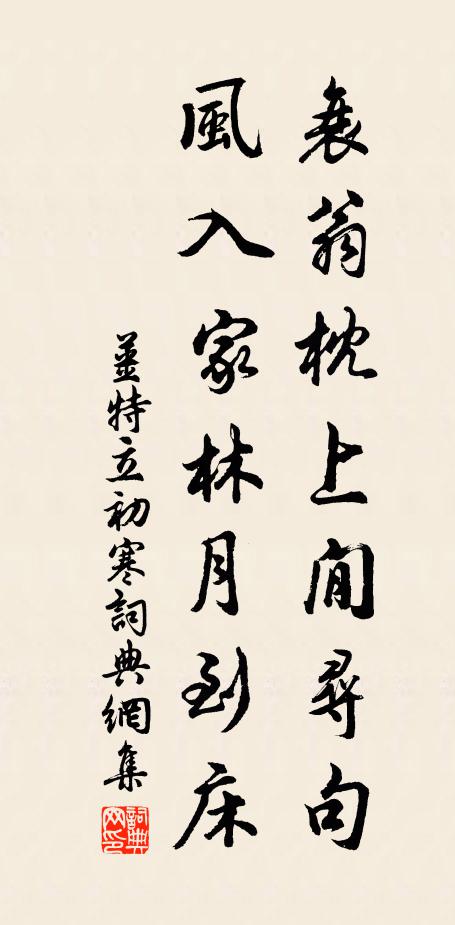 衰翁枕上閒尋句
風入家林月到床
姜特立初寒詞典網集
詞典
網印